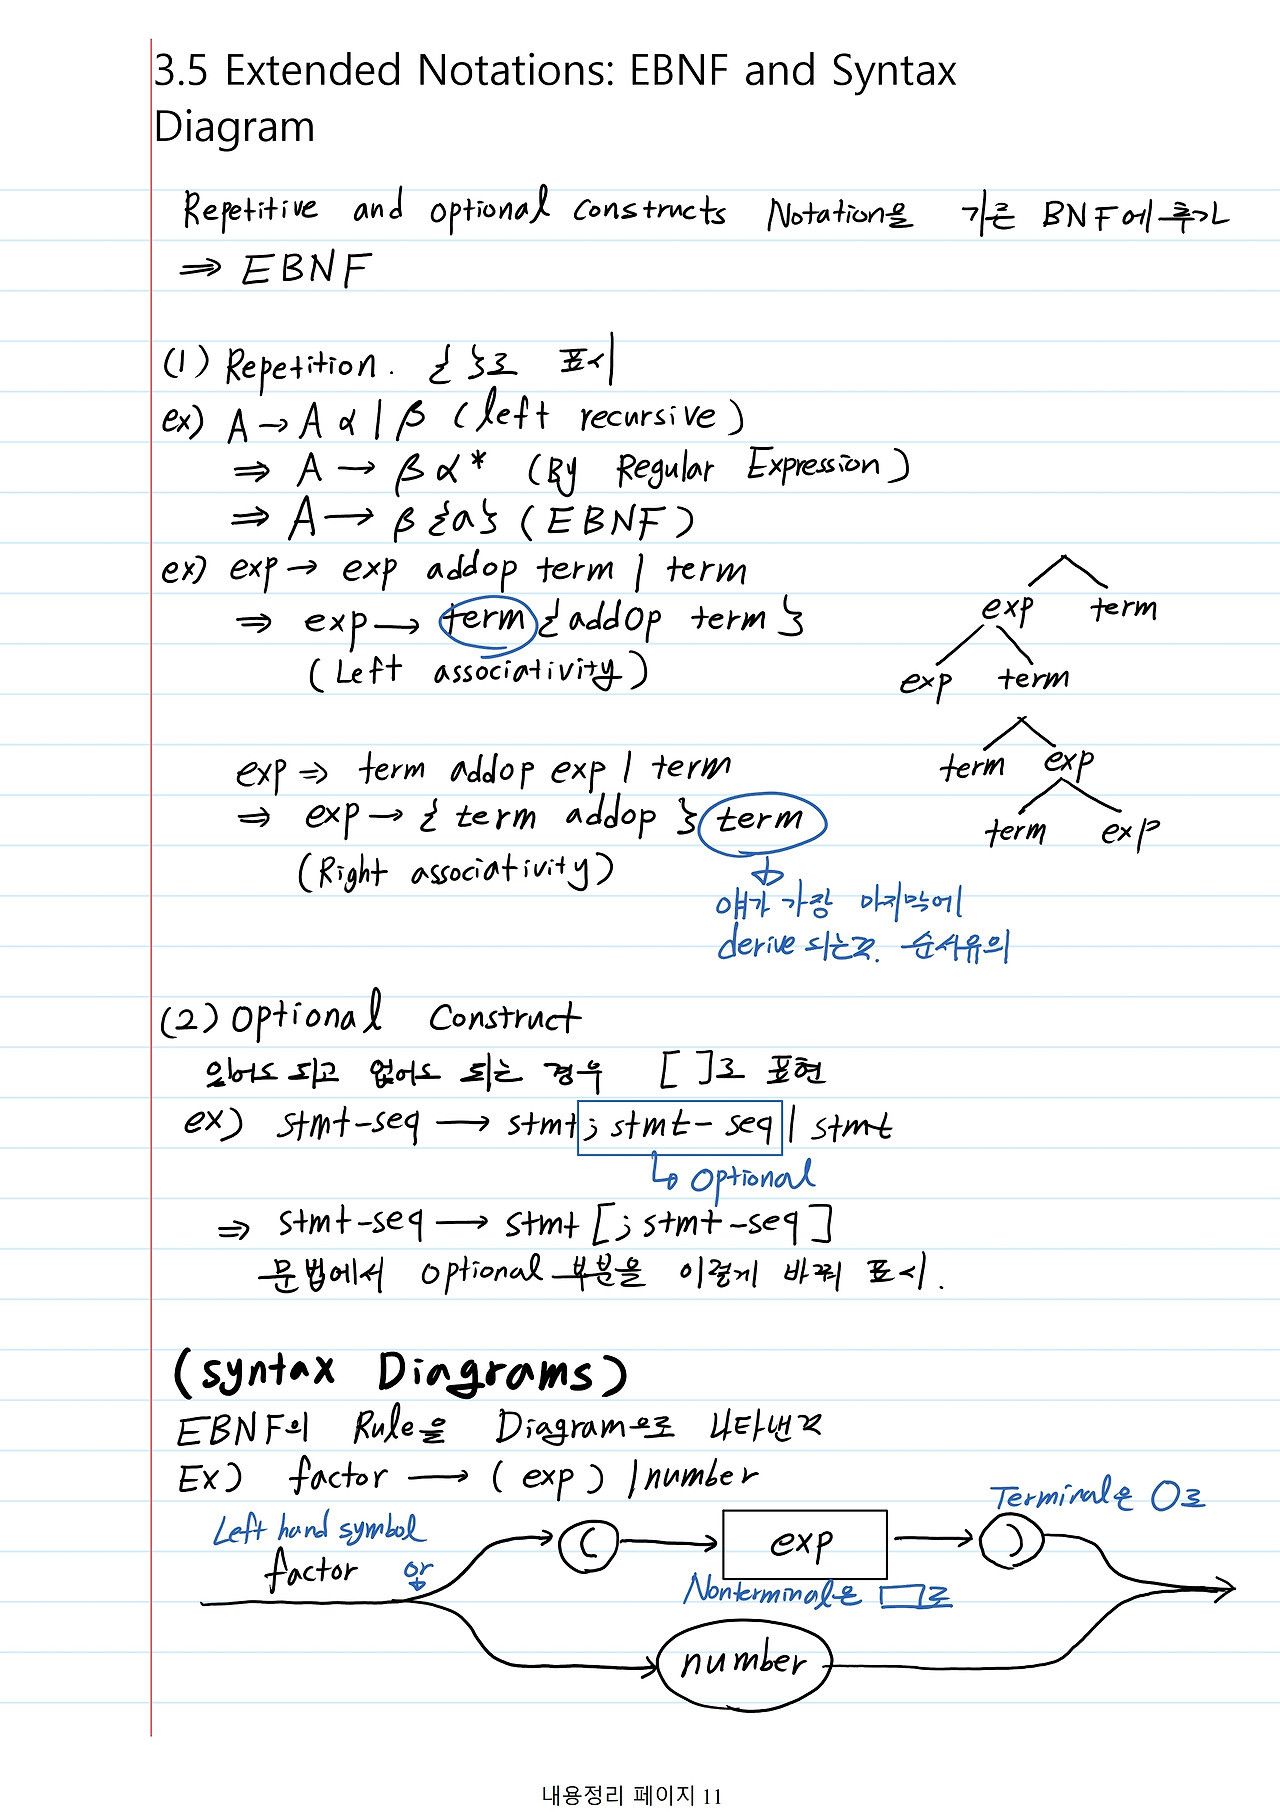 3.5 Extended Notations: EBNF and Syntax
Diagram
Repetitive and optional constructs Notation을 기존 BNF에 추가
⇒ EBNF
(1) Repetition. { }로 표시
ex) A → A α | β (left recursive)
⇒ A → β α* (By Regular Expression)
⇒ A → β {α} (EBNF)
ex) exp → exp addop term | term
⇒ exp → term { addop term }
(Left associativity)
exp term
exp term
exp ⇒ term addop exp | term
⇒ exp → { term addop } term
(Right associativity)
term exp
term exp
얘가 가장 마지막에
derive 되는것. 순서유의
(2) Optional Construct
있어도 되고 없어도 되는 경우 [ ]로 표현
ex) stmt-seq → stmt ; stmt-seq | stmt
↳ Optional
⇒ stmt-seq → stmt [ ; stmt-seq ]
문법에서 optional 부분을 이렇게 바꿔 표시.
(syntax Diagrams)
EBNF의 Rule을 Diagram으로 나타낸것
Ex) factor → ( exp ) | number
Terminal은 ○로
Left hand symbol
factor or
( exp )
Nonterminal은 □로
number
내용정리 페이지 11